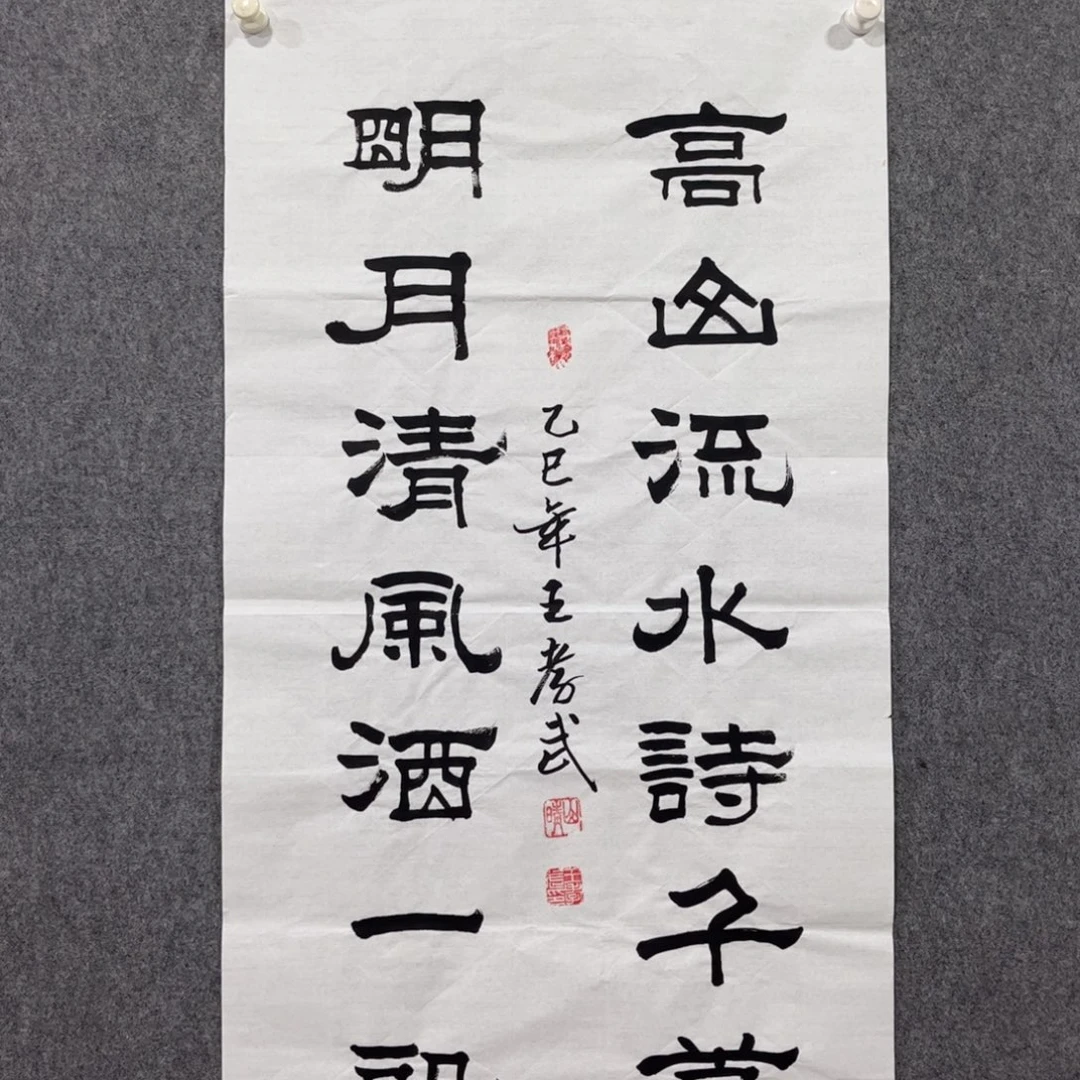 高山流水詩千
明月清風酒一
乙巳年王孝武